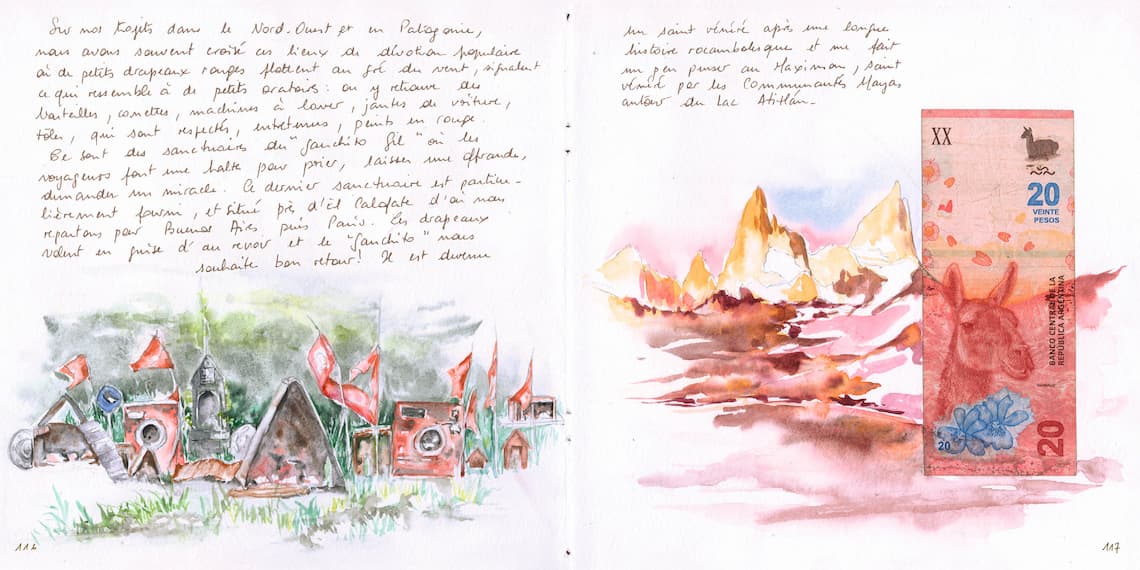 Sur nos trajets dans le Nord-Ouest et en Patagonie,
nous avons souvent croisé ces lieux de dévotion populaire
où de petits drapeaux rouges flottent au gré du vent, signalant
ce qui ressemble à de petits oratoires : on y retrouve des
bouteilles, canettes, machines à laver, jantes de voiture,
tôles, qui sont respectés, entretenus, peints en rouge.
Ce sont des sanctuaires du "Gauchito Gil" où les
voyageurs font une halte pour prier, laisser une offrande,
demander un miracle. Ce dernier sanctuaire est particu-
lièrement fourni, et situé près d'El Calafate d'où nous
repartons pour Buenos Aires puis Paris. Les drapeaux
volent en guise d'au revoir et le "Gauchito" nous
souhaite bon retour ! Il est devenu
116
un saint vénéré après une longue
histoire rocambolesque et me fait
un peu penser au Maximon, saint
vénéré par les Communautés Mayas
autour du Lac Atitlán.
XX
20
VEINTE
PESOS
BANCO CENTRAL DE LA
REPÚBLICA ARGENTINA
20
20
117